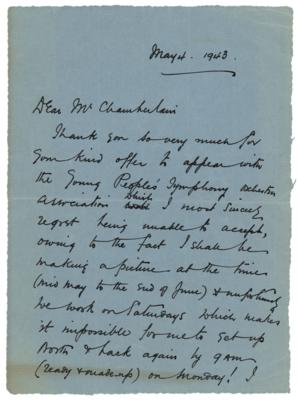 May 4. 1943.
Dear Mr Chamberlain
Thank you so very much for
your kind offer to appear with
the Young People's Symphony Orchestra
Association which I most sincerely
regret being unable to accept,
owing to the fact I shall be
making a picture at the time
(mid May to the end of June) & unfortunately
we work on Saturdays which makes
it impossible for me to get up
North & back again by 9am
(ready & made-up) on Monday! I